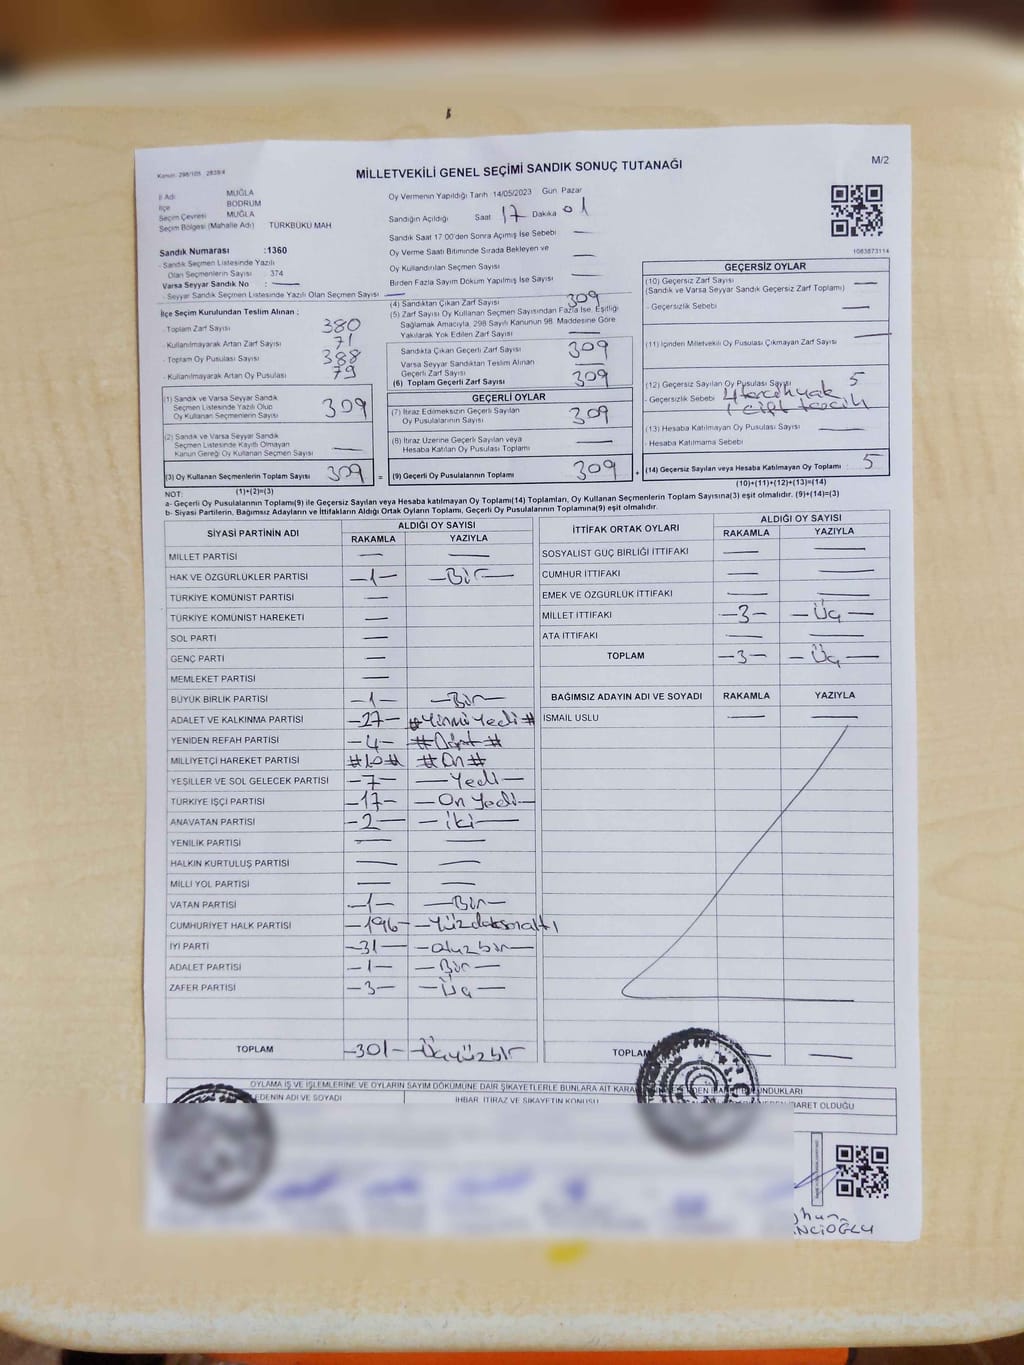 Kanun: 298/105 2839/4
MİLLETVEKİLİ GENEL SEÇİMİ SANDIK SONUÇ TUTANAĞI
M/2
İl Adı MUĞLA
İlçe BODRUM
Seçim Çevresi MUĞLA
Seçim Bölgesi (Mahalle Adı) TÜRKBÜKÜ MAH
Sandık Numarası :1360
- Sandık Seçmen Listesinde Yazılı
Olan Seçmenlerin Sayısı : 374
Varsa Seyyar Sandık No : —
- Seyyar Sandık Seçmen Listesinde Yazılı Olan Seçmen Sayısı : —
İlçe Seçim Kurulundan Teslim Alınan ;
- Toplam Zarf Sayısı 380
- Kullanılmayarak Artan Zarf Sayısı 71
- Toplam Oy Pusulası Sayısı 388
- Kullanılmayarak Artan Oy Pusulası 79
(1) Sandık ve Varsa Seyyar Sandık
Seçmen Listesinde Yazılı Olup
Oy Kullanan Seçmenlerin Sayısı 309
(2) Sandık ve Varsa Seyyar Sandık
Seçmen Listesinde Kayıtlı Olmayan
Kanun Gereği Oy Kullanan Seçmen Sayısı —
(3) Oy Kullanan Seçmenlerin Toplam Sayısı 309
(1)+(2)=(3)
Oy Vermenin Yapıldığı Tarih 14/05/2023 Gün Pazar
Sandığın Açıldığı Saat 17 Dakika 01
Sandık Saat 17:00'den Sonra Açılmış İse Sebebi —
Oy Verme Saati Bitiminde Sırada Bekleyen ve
Oy Kullandırılan Seçmen Sayısı —
Birden Fazla Sayım Döküm Yapılmış İse Sayısı —
(4) Sandıktan Çıkan Zarf Sayısı 309
(5) Zarf Sayısı Oy Kullanan Seçmen Sayısından Fazla İse, Eşitliği
Sağlamak Amacıyla, 298 Sayılı Kanunun 98. Maddesine Göre
Yakılarak Yok Edilen Zarf Sayısı —
Sandıkta Çıkan Geçerli Zarf Sayısı 309
Varsa Seyyar Sandıktan Teslim Alınan
Geçerli Zarf Sayısı —
(6) Toplam Geçerli Zarf Sayısı 309
GEÇERLİ OYLAR
(7) İtiraz Edilmeksizin Geçerli Sayılan
Oy Pusulasının Sayısı 309
(8) İtiraz Üzerine Geçerli Sayılan veya
Hesaba Katılan Oy Pusulası Toplamı —
= (9) Geçerli Oy Pusulalarının Toplamı 309
1083873114
GEÇERSİZ OYLAR
(10) Geçersiz Zarf Sayısı
(Sandık ve Varsa Seyyar Sandık Geçersiz Zarf Toplamı) —
- Geçersizlik Sebebi : —
(11) İçinden Milletvekili Oy Pusulası Çıkmayan Zarf Sayısı —
(12) Geçersiz Sayılan Oy Pusulası Sayısı 5
- Geçersizlik Sebebi : 4 tercih yok
1 çift tercih
(13) Hesaba Katılmayan Oy Pusulası Sayısı : —
- Hesaba Katılmama Sebebi
+ (14) Geçersiz Sayılan veya Hesaba Katılmayan Oy Toplamı : 5
(10)+(11)+(12)+(13)=(14)
NOT:
a- Geçerli Oy Pusulalarının Toplamı(9) ile Geçersiz Sayılan veya Hesaba katılmayan Oy Toplamı(14) Toplamları, Oy Kullanan Seçmenlerin Toplam Sayısına(3) eşit olmalıdır. (9)+(14)=(3)
b- Siyasi Partilerin, Bağımsız Adayların ve İttifakların Aldığı Ortak Oyların Toplamı, Geçerli Oy Pusulalarının Toplamına(9) eşit olmalıdır.
SİYASİ PARTİNİN ADI ALDIĞI OY SAYISI
RAKAMLA YAZIYLA
MİLLET PARTİSİ — —
HAK VE ÖZGÜRLÜKLER PARTİSİ —1— —Bir—
TÜRKİYE KOMÜNİST PARTİSİ —
TÜRKİYE KOMÜNİST HAREKETİ —
SOL PARTİ —
GENÇ PARTİ —
MEMLEKET PARTİSİ —
BÜYÜK BİRLİK PARTİSİ —1— —Bir—
ADALET VE KALKINMA PARTİSİ —27— #Yirmi Yedi#
YENİDEN REFAH PARTİSİ —4— #Dört#
MİLLİYETÇİ HAREKET PARTİSİ #10# #On#
YEŞİLLER VE SOL GELECEK PARTİSİ —7— —Yedi—
TÜRKİYE İŞÇİ PARTİSİ —17— —On Yedi—
ANAVATAN PARTİSİ —2— —iki—
YENİLİK PARTİSİ — —
HALKIN KURTULUŞ PARTİSİ — —
MİLLİ YOL PARTİSİ — —
VATAN PARTİSİ —1— —Bir—
CUMHURİYET HALK PARTİSİ —196— —Yüzdoksanaltı
İYİ PARTİ —31— —otuzbir—
ADALET PARTİSİ —1— —Bir—
ZAFER PARTİSİ —3— —Üç—
TOPLAM —301— —Üçyüzbir
İTTİFAK ORTAK OYLARI ALDIĞI OY SAYISI
RAKAMLA YAZIYLA
SOSYALİST GÜÇ BİRLİĞİ İTTİFAKI — —
CUMHUR İTTİFAKI — —
EMEK VE ÖZGÜRLÜK İTTİFAKI — —
MİLLET İTTİFAKI —3— —Üç—
ATA İTTİFAKI — —
TOPLAM —3— —Üç—
BAĞIMSIZ ADAYIN ADI VE SOYADI RAKAMLA YAZIYLA
İSMAİL USLU — —
TOPLAM — —
OYLAMA İŞ VE İŞLEMLERİNE VE OYLARIN SAYIM DÖKÜMÜNE DAİR ŞİKAYETLERLE BUNLARA AİT
İHBAR, İTİRAZ VE ŞİKAYETİN KONUSU